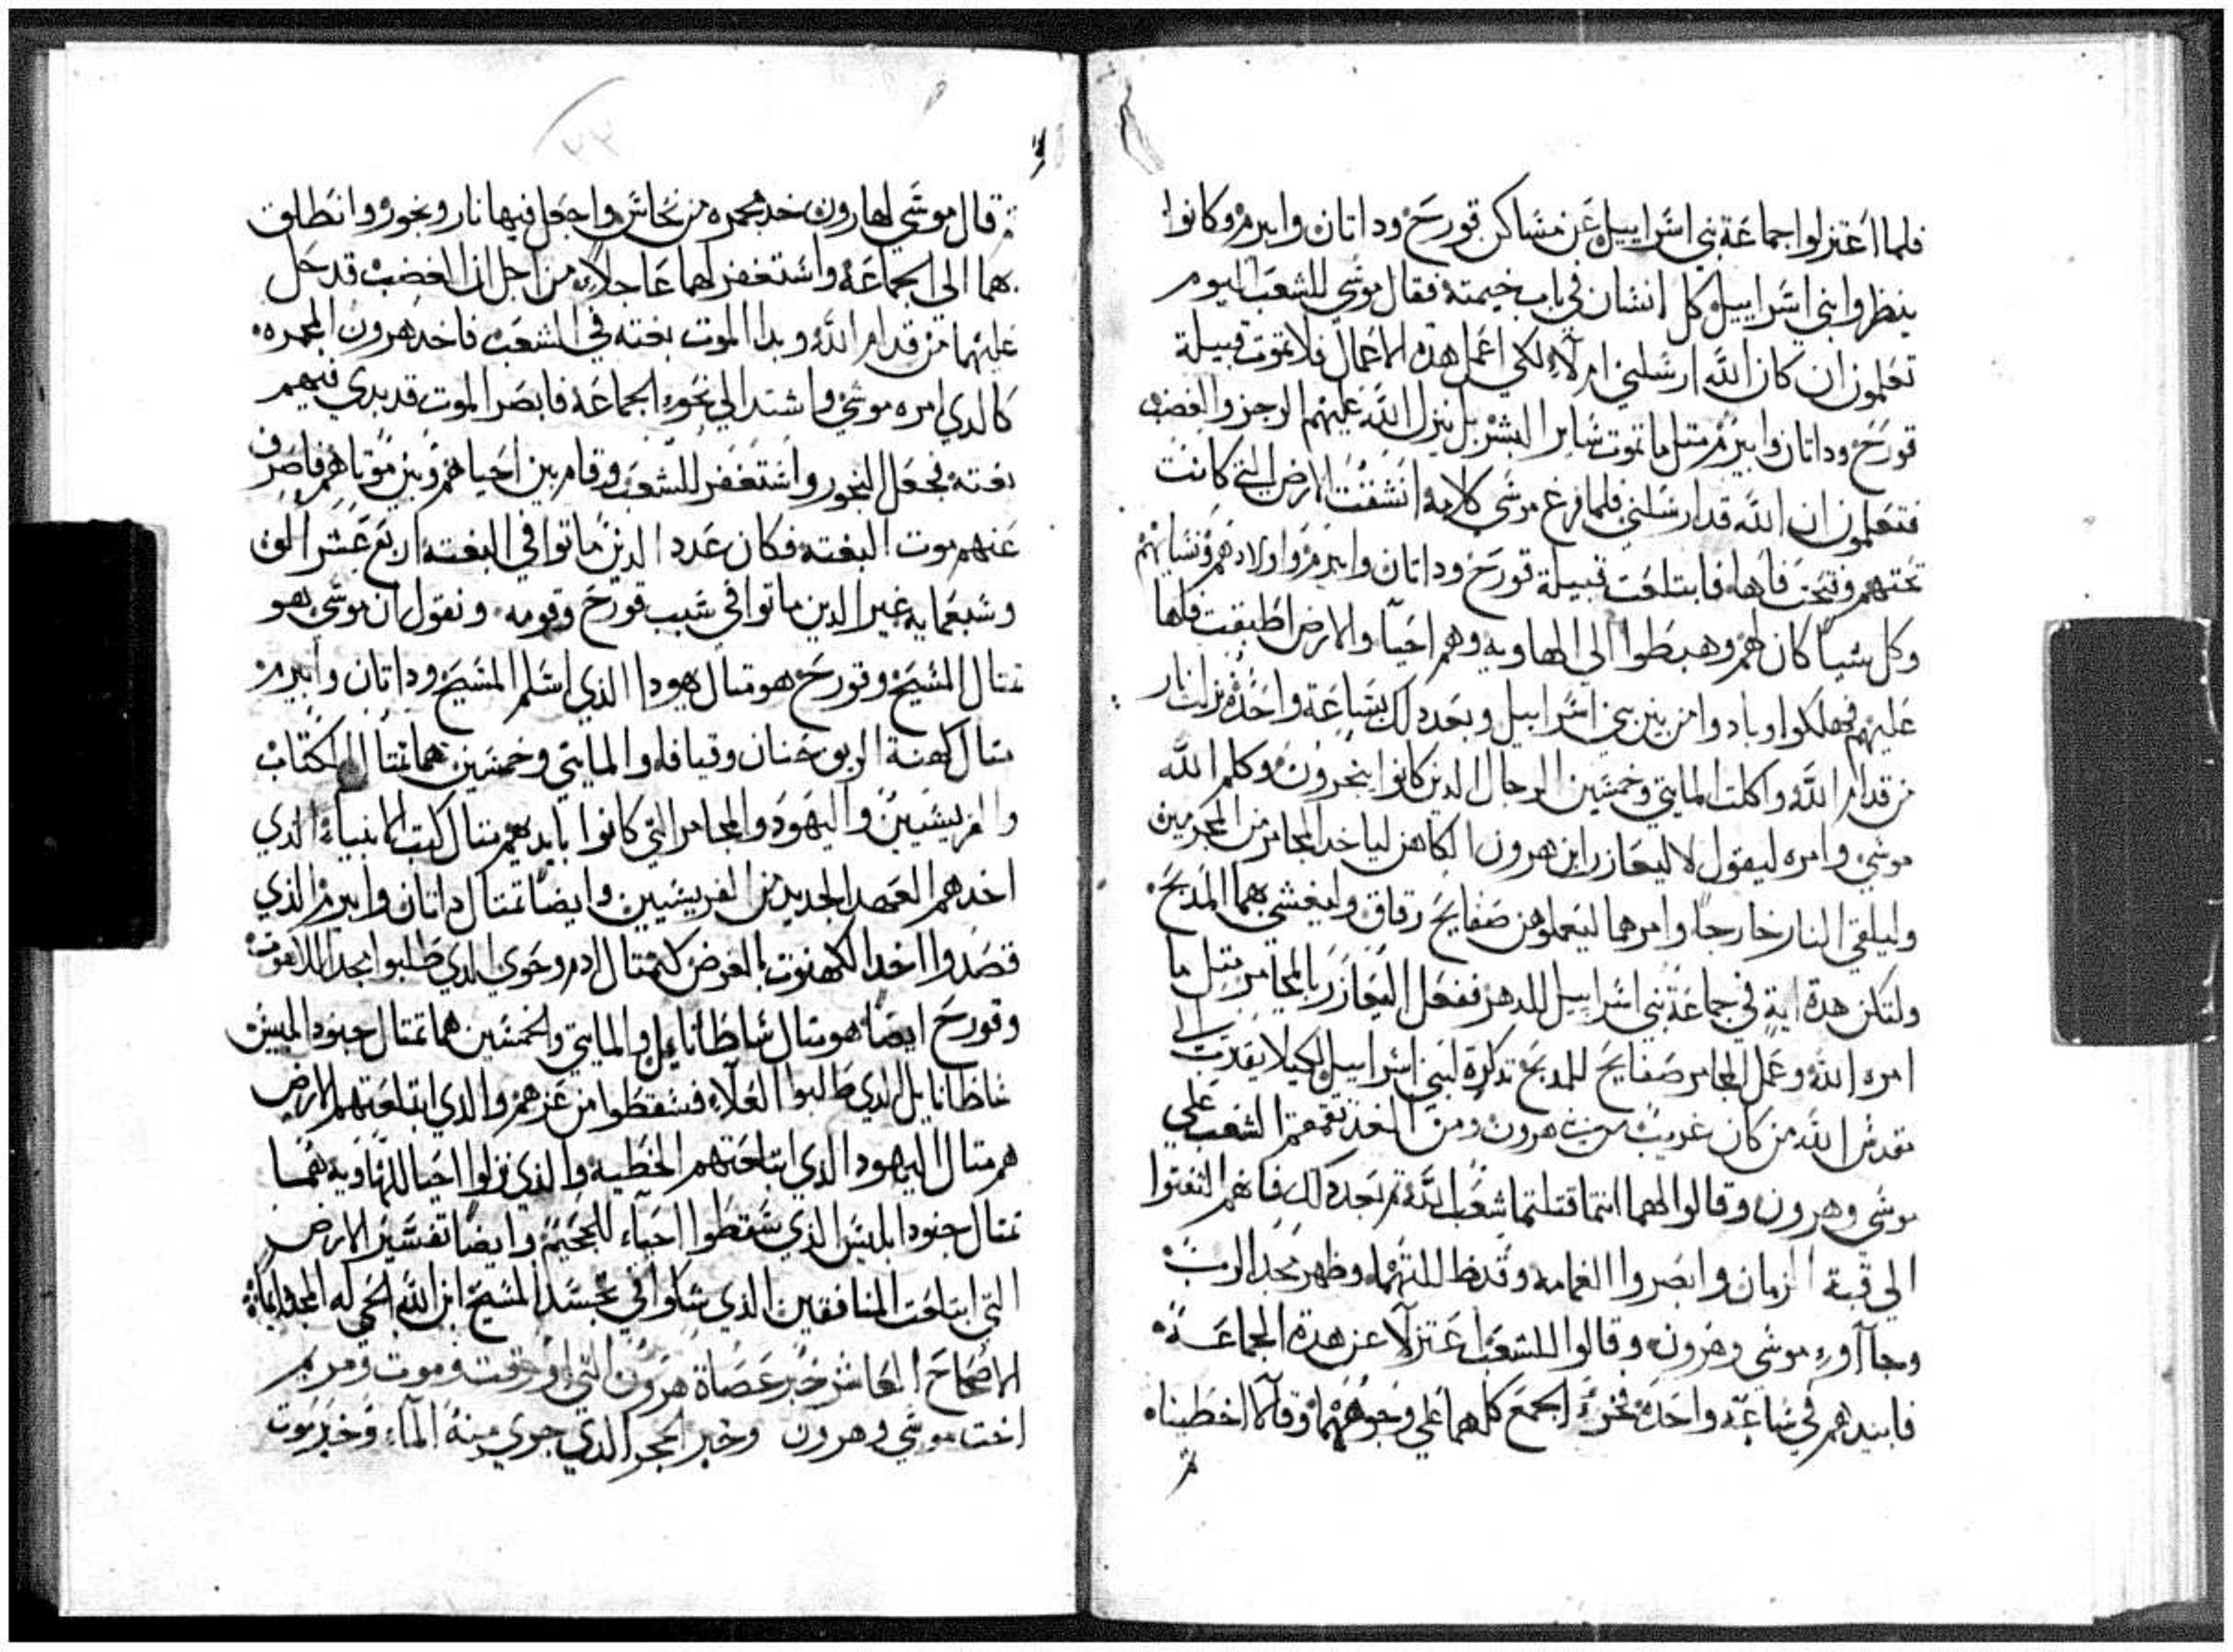 فلما اعتزلوا جماعة بني اسراييل عن مساكن قورح وداتان وابيرم وكانوا
ينظروا بني اسراييل كل انسان في باب خيمته فقال موسي للشعب اليوم
تعلمون ان كان الله ارسلني ام لا لكي اعمل هده الاعمال فلا تموت قبيلة
قورح وداتان وابيرم متل ما تموت ساير البشر بل ينزل الله عليهم الرجز والغضب
فتعلمون ان الله قد ارسلني فلما فرغ موسي كلامه انشقت الارض التي كانت
تحتهم وفتحت فاها فابتلعت قبيلة قورح وداتان وابيرم واولادهم ونسايهم
وكل شيا كان لهم وهبطوا الي الهاويه وهم احيا والارض اطبقت فاها
عليهم فهلكوا وبادوا من بين بني اسراييل وبعد دلك بساعة واحده نزلت نار
من قدام الله واكلت المايتي وخمسين الرجال الدين كانوا يبخرون وكلم الله
موسي وامره ليقول لاليعازر ابن هرون الكاهن لياخد المجامر من المجرمين
وليلقي النار خارجا وامرهما ليعملوهن صفايح رقاق وليغشي بهما المدبح
ولتكن هدة اية في جماعة بني اسراييل للدهر ففعل اليعازر بالمجامر متل ما
امره الله وعمل المجامر صفايح للمدبح تدكرة لبني اسراييل لكيلا يقدرب الي
قدس الله من كان غريب من هرون ومن الغد تقمقم الشعب علي
موسي وهرون وقالوا لهما انتما قتلتما شعب الله تم بعد دلك فانهم التفتوا
الي قبة الزمان وابصروا الغمامه وقد ظللتهما وظهر مجد الرب
وجااوا موسي وهرون وقالوا للشعب اعتزلا عن هدة الجماعة
فابيدهم في ساعة واحدة فخر الجمع كلهما علي وجوههما وقالا اخطيناه
تم قال موسي لهارون خد مجمره من نحاس واجعل فيها نار وبخور وانطلق
بهما الي الجماعة واستغفر لهما عاجلا من اجل ان الغضب قد حل
عليهما من قدام الله وبدا الموت بغته في الشعب فاخد هرون المجمره
كالدي امره موسي واشتد الي نحو الجماعة فابصر الموت قد بدي فيهم
بغتة فجعل البخور واستغفر للشعب وقام بين احياهم وبين موتاهم فاصرف
عنهم موت البغته فكان عدد الدين ماتوا في البغته اربع عشر الف
وسبعمايه غير الدين ماتوا في سبب قورح وقومه ونقول ان موسي هو
تمتال المسيح وقورح هو متال يهودا الذي اسلم المسيح وداتان وابيرم
متال كهنة الرب حنان وقيافا والمايتي وخمسين هما تمتال الكتاب
والفريسيين واليهود والمجامر التي كانوا بايديهم متال كتب الانبياء الدي
اخدهم العهد الجديد من الفريسيين وايضا تمتال داتان وابيرم الذي
قصدوا اخد الكهنوت بالغرض كمتال ادم وحوي الدي طلبوا مجد اللاهوت
وقورح ايضا هو متال شاطانايل والمايتي والخمسين هما تمتال جنود ابليس
شاطانايل الدي طالبوا العلاء فسقطوا من عزهم والدي ابتلعتهم الارض
هم متال اليهود الدي ابتلعتهم الخطيه والدي نزلوا احيا للهاويه هما
تمتال جنود ابليس الدي سقطوا احياء للجحيم وايضا تفسير الارض
التي ابتلعت المنافقين الدي شكوا في تجسد المسيح ابن الله الحي له المجد
الاصحاح العاشر خبر عصاة هرون التي اورقت وموت ومريم
اخت موسي وهرون وخبر الحجر الدي جري منه الماء وخبر موت